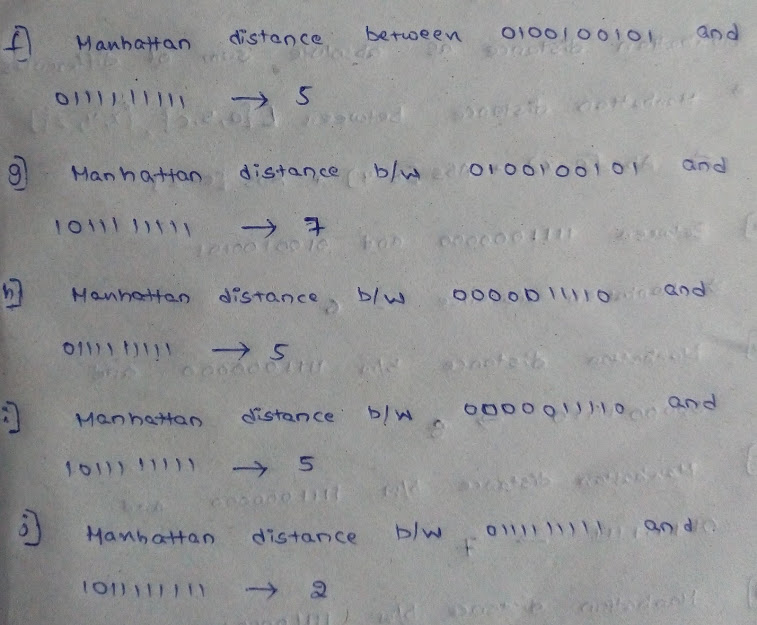 f] Manhattan distance between 0100100101 and
0111111111 → 5
g] Manhattan distance b/w 0100100101 and
1011111111 → 7
h] Manhattan distance b/w 0000011110 and
0111111111 → 5
i] Manhattan distance b/w 0000011110 and
1011111111 → 5
j] Manhattan distance b/w 0111111111 and
1011111111 → 2